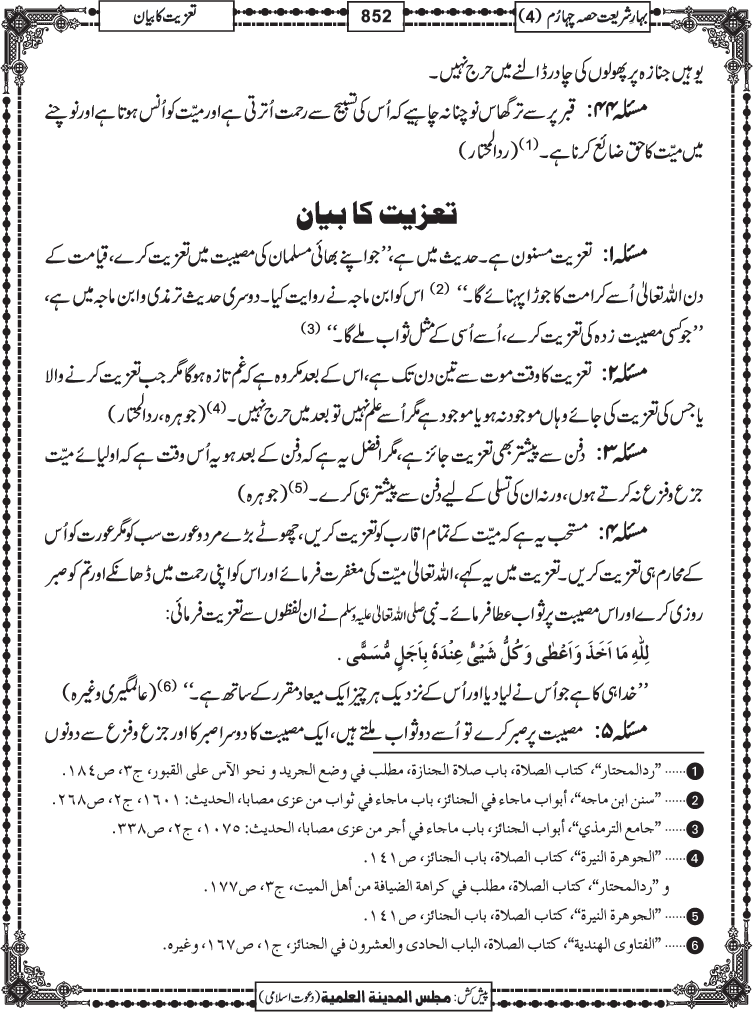 بہارِ شریعت حصہ چہارم (4)
852
تعزیت کا بیان
یوہیں جنازہ پر پھولوں کی چادر ڈالنے میں حرج نہیں۔
مسئلہ ۴۴: قبر پر سے تر گھاس نوچنا نہ چاہیے کہ اُس کی تسبیح سے رحمت اُترتی ہے اور میّت کو اُنس ہوتا ہے اور نوچنے
میں میّت کا حق ضائع کرنا ہے۔ (1) (ردالمحتار)
تعزیت کا بیان
مسئلہ ۱: تعزیت مسنون ہے۔ حدیث میں ہے، ’’جو اپنے بھائی مسلمان کی مصیبت میں تعزیت کرے، قیامت کے
دن اللہ تعالیٰ اُسے کرامت کا جوڑا پہنائے گا۔‘‘ (2) اس کو ابن ماجہ نے روایت کیا۔ دوسری حدیث ترمذی و ابن ماجہ میں ہے،
’’جو کسی مصیبت زدہ کی تعزیت کرے، اُسے اُسی کے مثل ثواب ملے گا۔‘‘ (3)
مسئلہ ۲: تعزیت کا وقت موت سے تین دن تک ہے، اس کے بعد مکروہ ہے کہ غم تازہ ہوگا مگر جب تعزیت کرنے والا
یا جس کی تعزیت کی جائے وہاں موجود نہ ہو یا موجود ہے مگر اُسے علم نہیں تو بعد میں حرج نہیں۔ (4) (جوہرہ، ردالمحتار)
مسئلہ ۳: دفن سے پیشتر بھی تعزیت جائز ہے، مگر افضل یہ ہے کہ دفن کے بعد ہو یہ اُس وقت ہے کہ اولیائے میّت
جزع و فزع نہ کرتے ہوں، ورنہ ان کی تسلی کے لیے دفن سے پیشتر ہی کرے۔ (5) (جوہرہ)
مسئلہ ۴: مستحب یہ ہے کہ میّت کے تمام اقارب کو تعزیت کریں، چھوٹے بڑے مرد و عورت سب کو مگر عورت کو اُس
کے محارم ہی تعزیت کریں۔ تعزیت میں یہ کہے، اللہ تعالیٰ میّت کی مغفرت فرمائے اور اس کو اپنی رحمت میں ڈھانکے اور تم کو صبر
روزی کرے اور اس مصیبت پر ثواب عطا فرمائے۔ نبی صلی اللہ تعالیٰ علیہ وسلم نے ان لفظوں سے تعزیت فرمائی:
لِلّٰهِ مَا اَخَذَ وَاَعْطٰی وَکُلُّ شَیْئٍ عِنْدَهٗ بِاَجَلٍ مُّسَمًّی .
’’خدا ہی کا ہے جو اُس نے لیا دیا اور اُس کے نزدیک ہر چیز ایک میعاد مقرر کے ساتھ ہے۔‘‘ (6) (عالمگیری وغیرہ)
مسئلہ ۵: مصیبت پر صبر کرے تو اُسے دو ثواب ملتے ہیں، ایک مصیبت کا دوسرا صبر کا اور جزع و فزع سے دونوں
1 ...... ”ردالمحتار“، کتاب الصلاة، باب صلاة الجنازة، مطلب في وضع الجرید و نحو الآس علی القبور، ج٣، ص١٨٤.
2 ...... ”سنن ابن ماجه“، أبواب ماجاء في الجنائز، باب ماجاء في ثواب من عزی مصابا، الحدیث: ١٦٠١، ج٢، ص٢٦٨.
3 ...... ”جامع الترمذي“، أبواب الجنائز، باب ماجاء في أجر من عزی مصابا، الحدیث: ١٠٧٥، ج٢، ص٣٣٨.
4 ...... ”الجوهرة النیرة“، کتاب الصلاة، باب الجنائز، ص١٤١.
و ”ردالمحتار“، کتاب الصلاة، مطلب في کراهة الضیافة من أهل المیت، ج٣، ص١٧٧.
5 ...... ”الجوهرة النیرة“، کتاب الصلاة، باب الجنائز، ص١٤١.
6 ...... ”الفتاوی الهندیة“، کتاب الصلاة، الباب الحادی والعشرون في الجنائز، ج١، ص١٦٧، وغیره.
پیش کش: مجلس المدینة العلمیة (دعوت اسلامی)